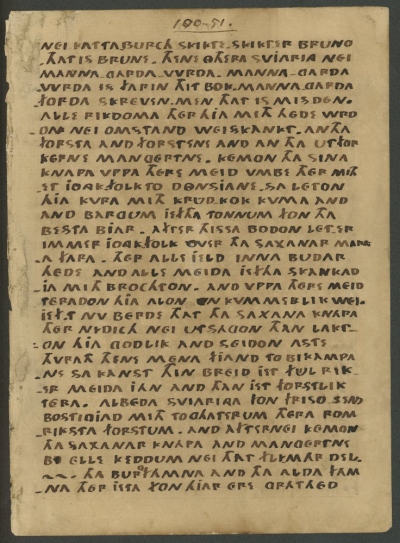 190-91.
NEI KATTABURCH SKIKTE. SKIKTER BRUNO
THAT IS BRUNE. THENE OTHERA SVJARJA NEI
MANNA-GARDA VVRDA. MANNA-GARDA
VVRDA IS FARIN THIT BOK. MANNA GARDA
FORDA SKREVEN. MEN THAT IS MISDEN.
ALLE RIKDOMA THER HJA MITH HEDE WRD
ON NEI OMSTAND WEISKANKT. AN THA
FORSTA AND FORSTENE AND AN THA UTFOR
KERNE MANGERTNE. KEMON THA SINA
KNAPA VPPA THERE MEID VMBE THER MITH
ET JONGKFOLK TO DONSJANE. SA LETON
HJA KVRA MITH KRUD KOK KVMA AND
AND BARGUM JEFTHA TONNUM FON THA
BESTA BJAR. AFTER THISSA BODON LETER
IMMER JONGKFOLK OVER THA SAXANAR MARK
A FARA. THER ALLE JELD INNA BUDAR
HEDE AND ALLE MEIDA JEFTHA SKANKAD
JA MITH BROCHTON. AND VPPA THERE MEID
TERADON HJA ALON ON KVMMERLIK WEI.
JEFT NV BERDE THAT THA SAXANA KNAPA
THER NYDICH NEI UTSAGON THAN LAKT-
ON HJA GODLIK AND SEIDON ASTE
THVRATH THENE MENA FJAND TO BIKAMPA
NE SA KANST THIN BREID JET FUL RIK-
ER MEIDA JAN AND THAN JET FORSTLIK
TERA. AL BEDA SVJARJRA FON FRISO SEND
BOSTIGJAD MITH TOGHATERUM THERA ROM
RIKSTA FORSTUM. AND AFTERNEI KEMON
THA SAXANAR KNAPA AND MANGERTNE
BI ELLE KEDDUM NEI THAT FLYMAR DEL.
THA BURCHFAMNA AND THA ALDA FAM
NA THER JETA FON HJAR ERE GRATHED